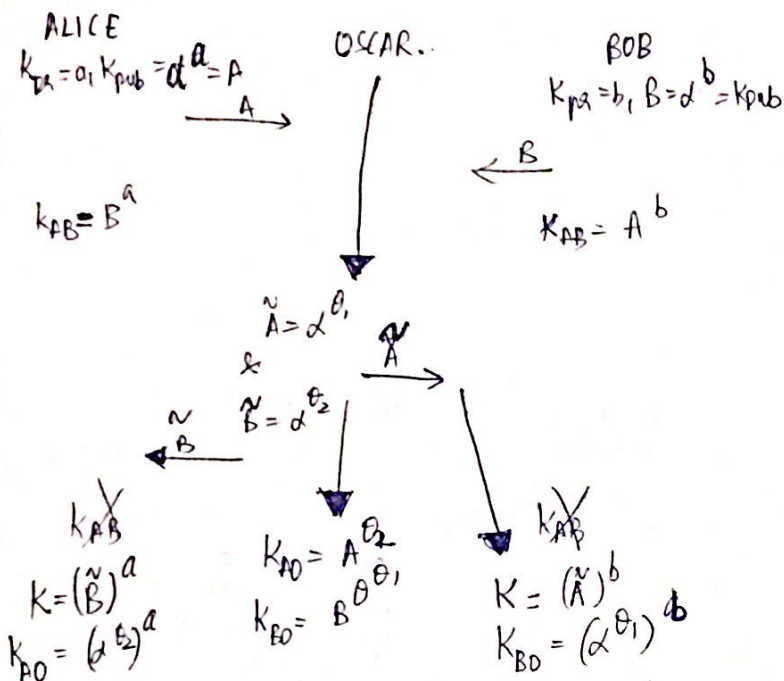 ALICE
K_pr = a, K_pub = α^a = A
A
k_AB = B^a
OSCAR.
BOB
K_pr = b, B = α^b = K_pub
B
K_AB = A^b
Ã = α^θ₁
&
B̃ = α^θ₂
Ã
B̃
K_AB
K = (B̃)^a
K_AO = (α^θ₂)^a
K_AO = A^θ₂
K_BO = B^θ^θ₁
K_AB
K = (Ã)^b
K_BO = (α^θ₁)^b